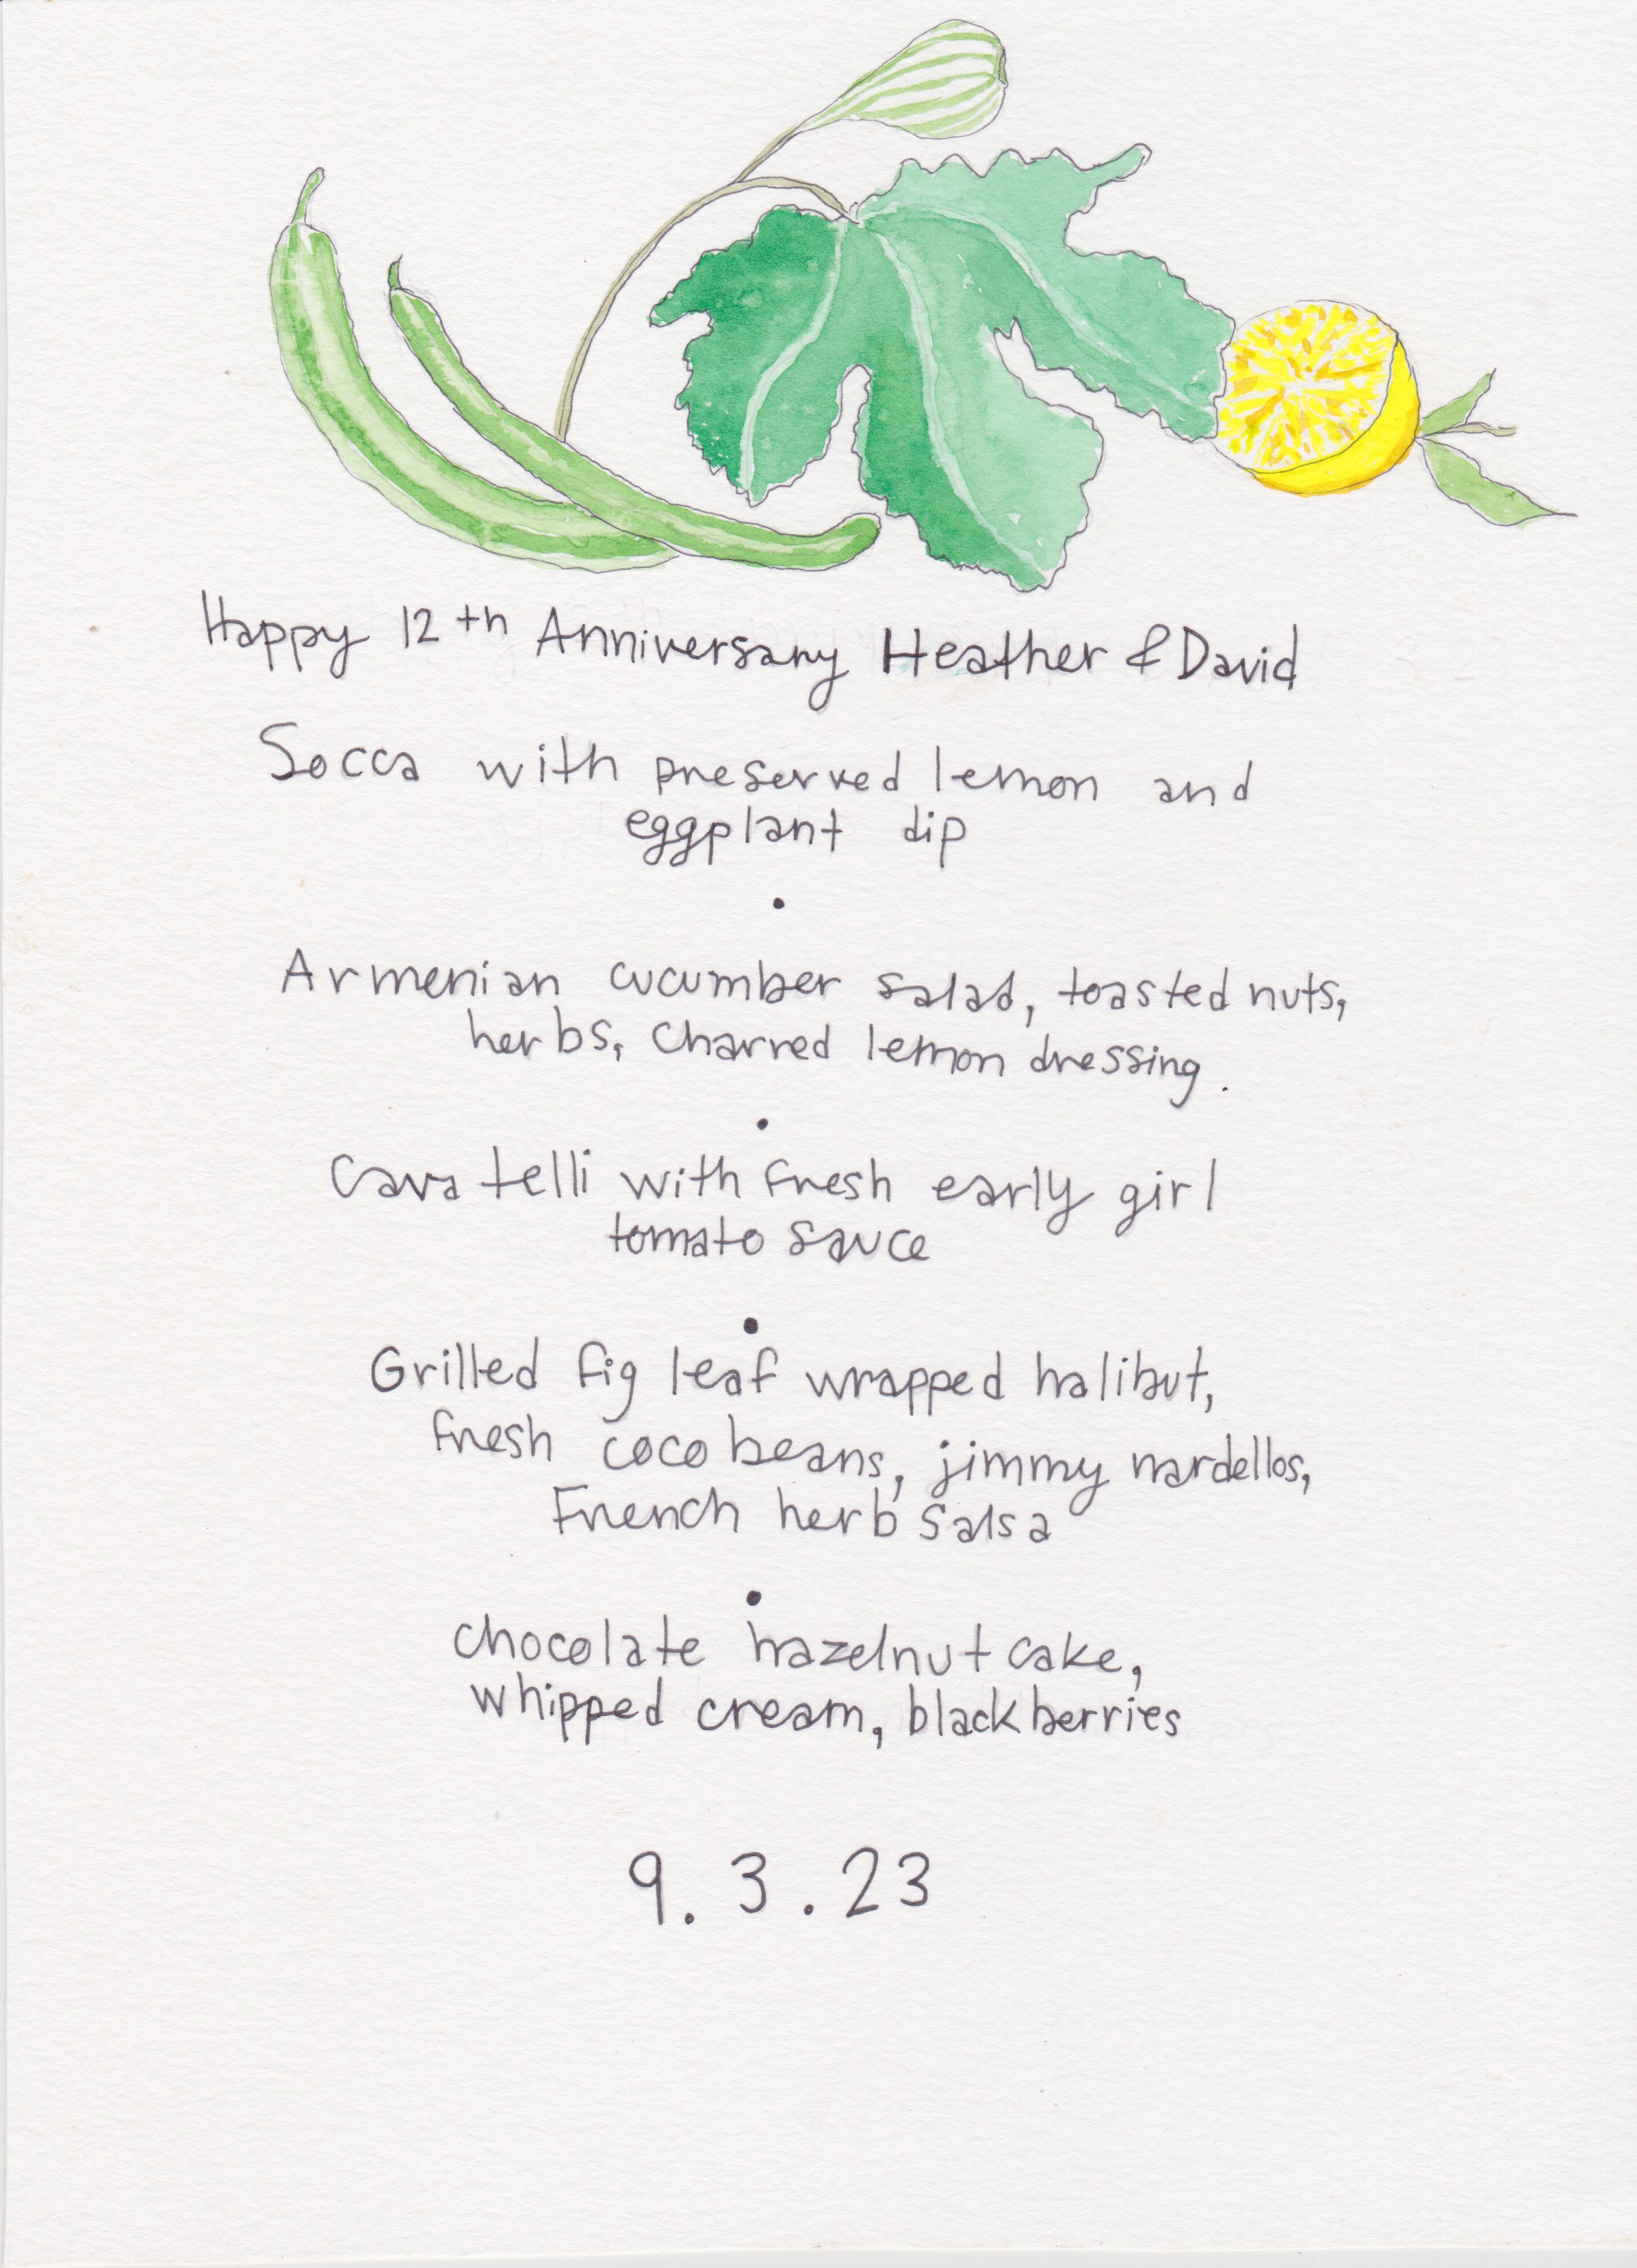 Happy 12th Anniversary Heather & David
Socca with preserved lemon and
eggplant dip
.
Armenian cucumber salad, toasted nuts,
herbs, Charred lemon dressing.
.
Cavatelli with fresh early girl
tomato sauce
.
Grilled fig leaf wrapped halibut,
fresh coco beans, jimmy nardellos,
French herb salsa
.
chocolate hazelnut cake,
whipped cream, blackberries
9.3.23